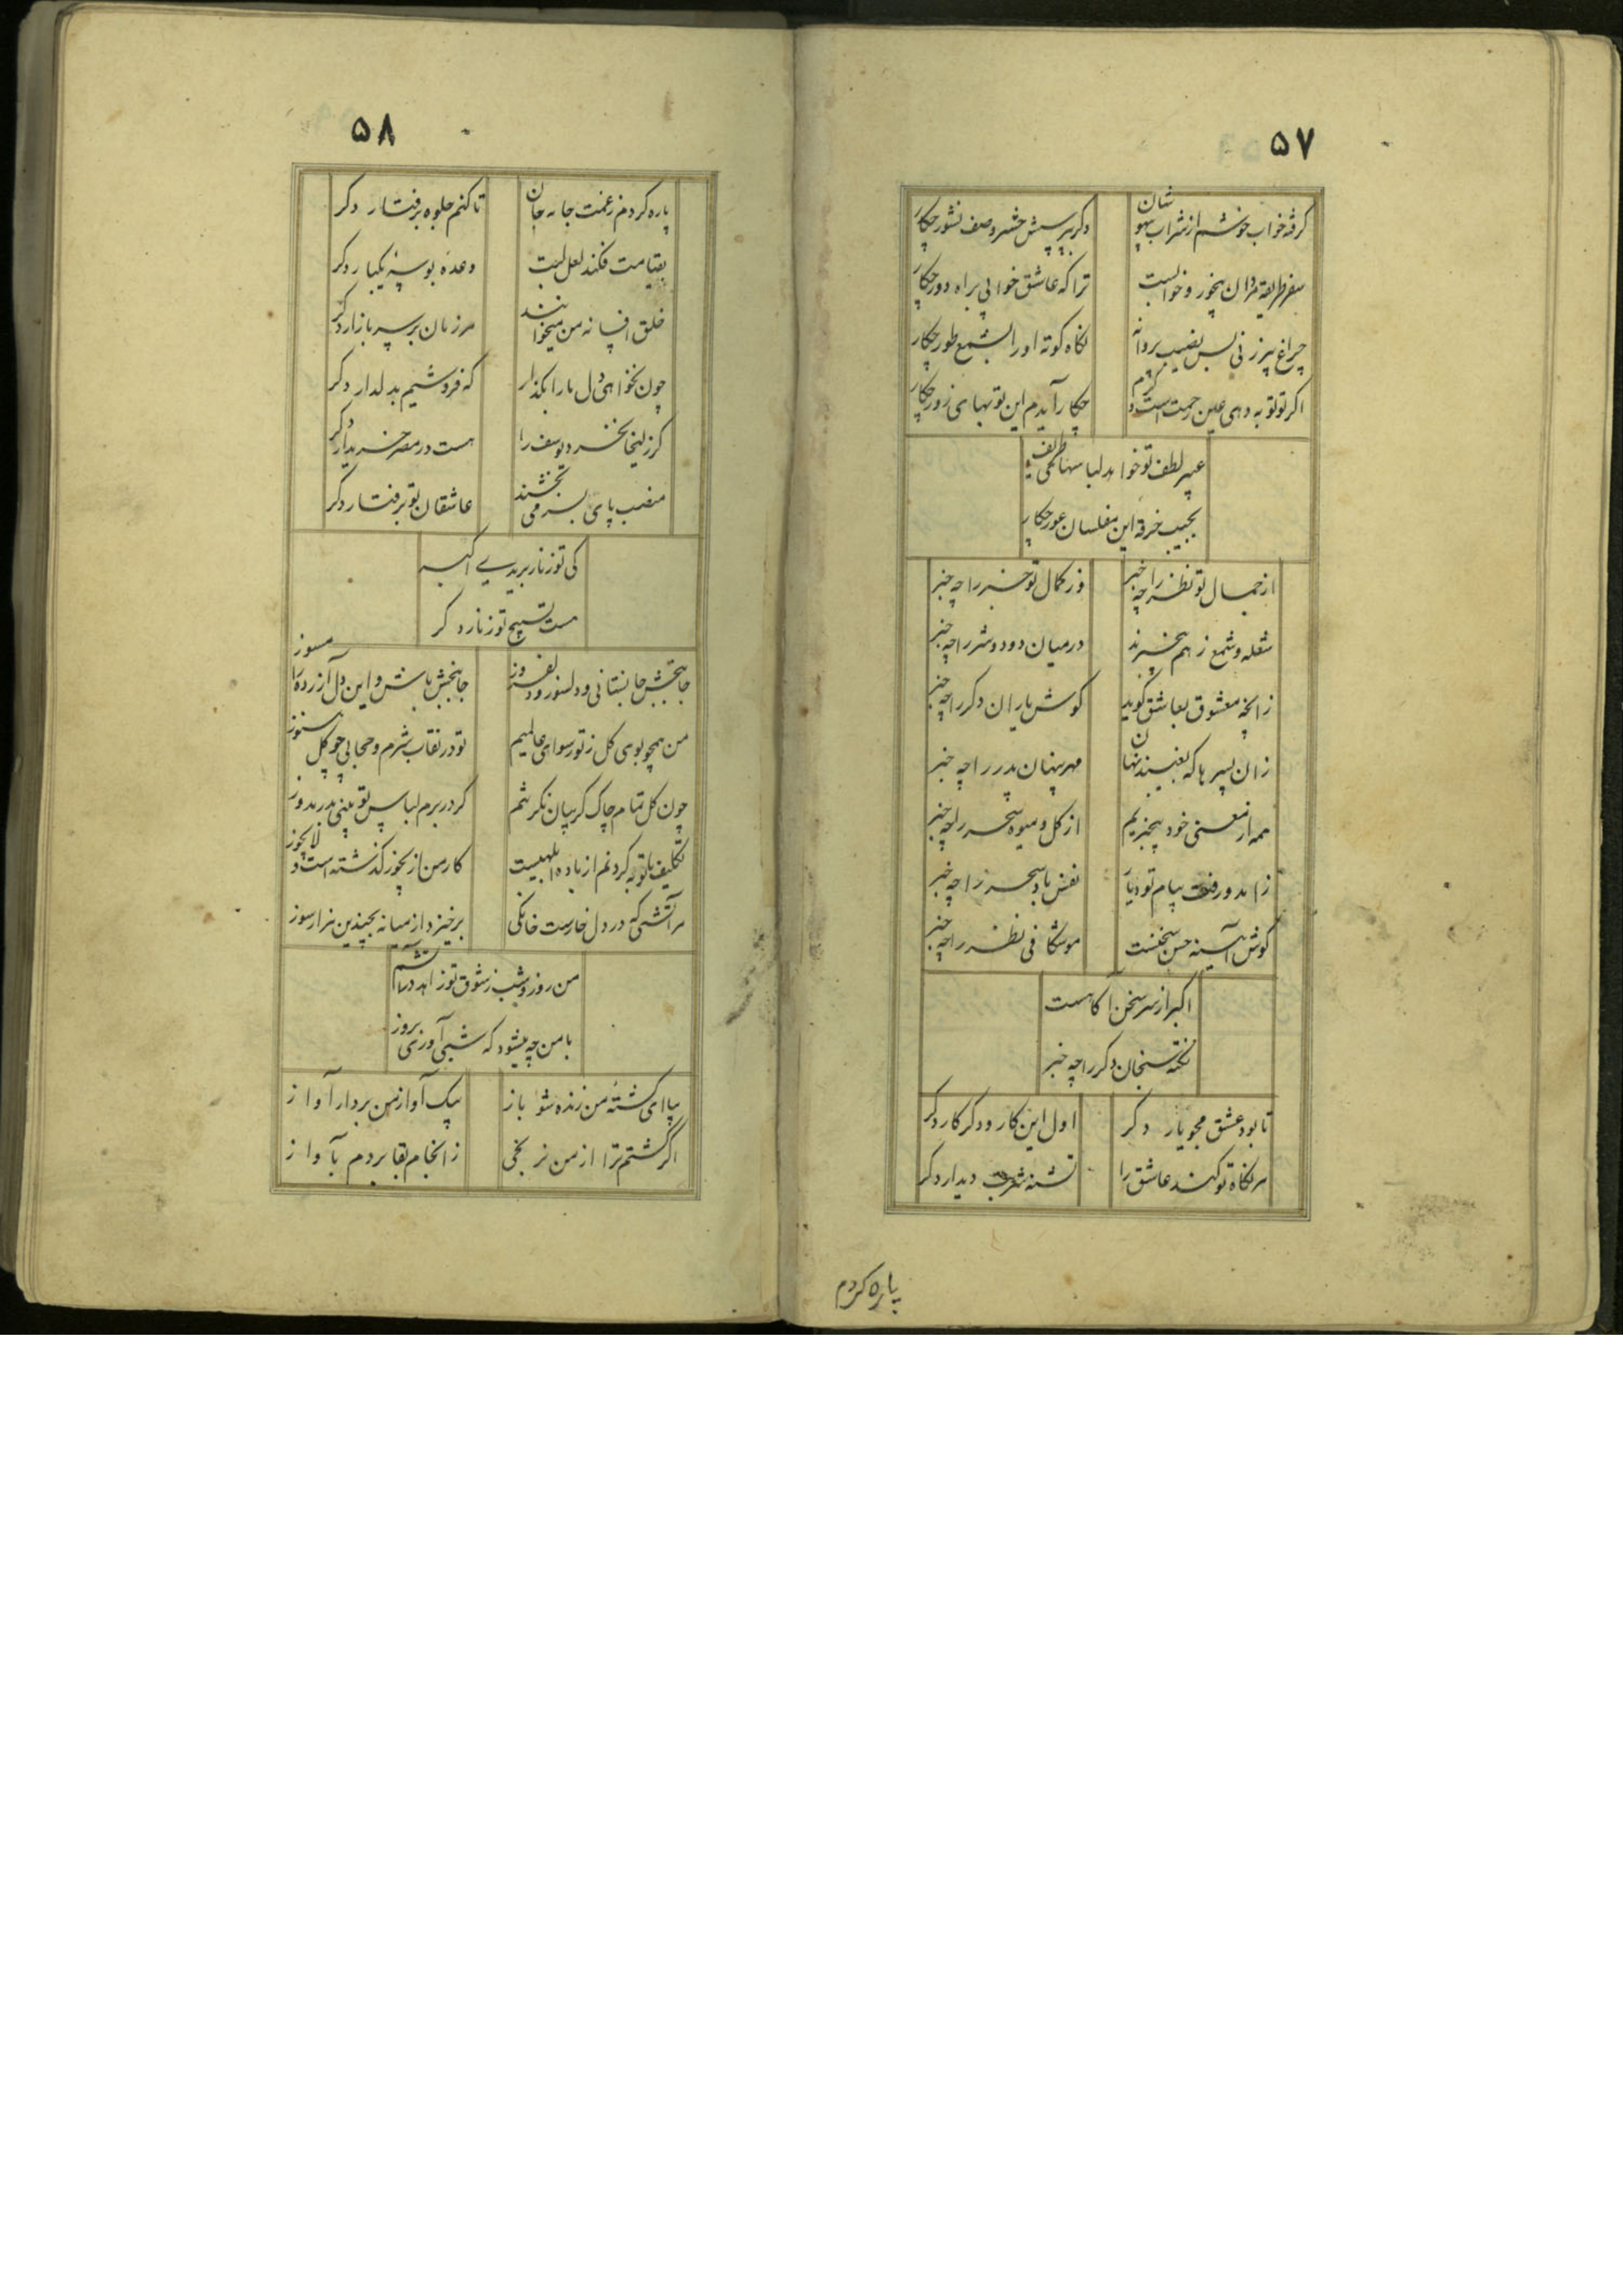 ۵۷
گرفته خواب خوشم از شراب بیهوشان
دگر بپرسش حشر و صف نشور چکار
سفر طریقه مردان بیخور و خوابست
ترا که عاشق خوابی براه دور چکار
چراغ پیرزنی بس نصیب پروانه
نگاه کوته او را بشمع طور چکار
اگر تو توبه دهی عین رحمت است و کرم
چکار آیدم این توبهای زور چکار
عبیر لطف تو خواهد لباسهای
بجیب خرقه این مفلسان عور چکار
از جمال تو نظر را چه خبر
وز کمال تو خبر را چه خبر
شعله و شمع ز هم بیخبرند
در میان دود و شرر را چه خبر
زانچه معشوق بعاشق گوید
گوش یاران دگر را چه خبر
زان پسرها که بغیبند نهان
مهر پنهان پدر را چه خبر
همه از معنی خود بیخبریم
از گل و میوه شجر را چه خبر
زاهد و رفت پیام تو
نفس باد سحر را چه خبر
گوش آیینه حسن سخنست
موشکافی نظر را چه خبر
اکبر از سر سخن آگاهست
نکته سنجان دگر را چه خبر
تا بود عشق مجو یار دگر
اول این کار و دگر کار دگر
هر نگاه تو کند عاشق را
تشنه شربت دیدار دگر
پاره کردم
۵۸
پاره کردم ز غمت جامه جان
تا کنم جلوه برفتار دگر
بقیامت فکند لعل لبت
وعده بوسه یکبار دگر
خلق افسانه من میخوانند
هر زمان بر سر بازار دگر
چون نخواهی دل ما را بگذار
که فروشیم بدلدار دگر
گر زلیخا نخرد یوسف را
هست در مصر خریدار دگر
منصب پای بسر می بخشند
عاشقان تو برفتار دگر
کی تو زنار بریدی اکبر
هست تسبیح تو زنار دگر
جانبخش جانستانی و دلسوز و دلفروز
جانبخش باش و این دل آزرده را مسوز
من همچو بوی گل ز تو رسوای عالمیم
تو در نقاب شرم و حجابی چو گل هنوز
چون گل تمام چاک گریبان نگر شم
گر در برم لباس تو بینی بدر بدوز
تکلیف توبه کردنم از باده ابلهیست
کار من از یجوز گذشته است و لایجوز
هر آتشی که در دل خارست خانگی
برخیزد از میانه بچندین هزار سوز
من روز و شب ز شوق تو زاهد در آتشم
با من چه میشود که شبی آوری بروز
بیا ای کشته من زنده شو باز
بیک آواز من بردار آواز
اگر کشتم ترا از من نرنجی
ز انجام بقا بردم بآواز